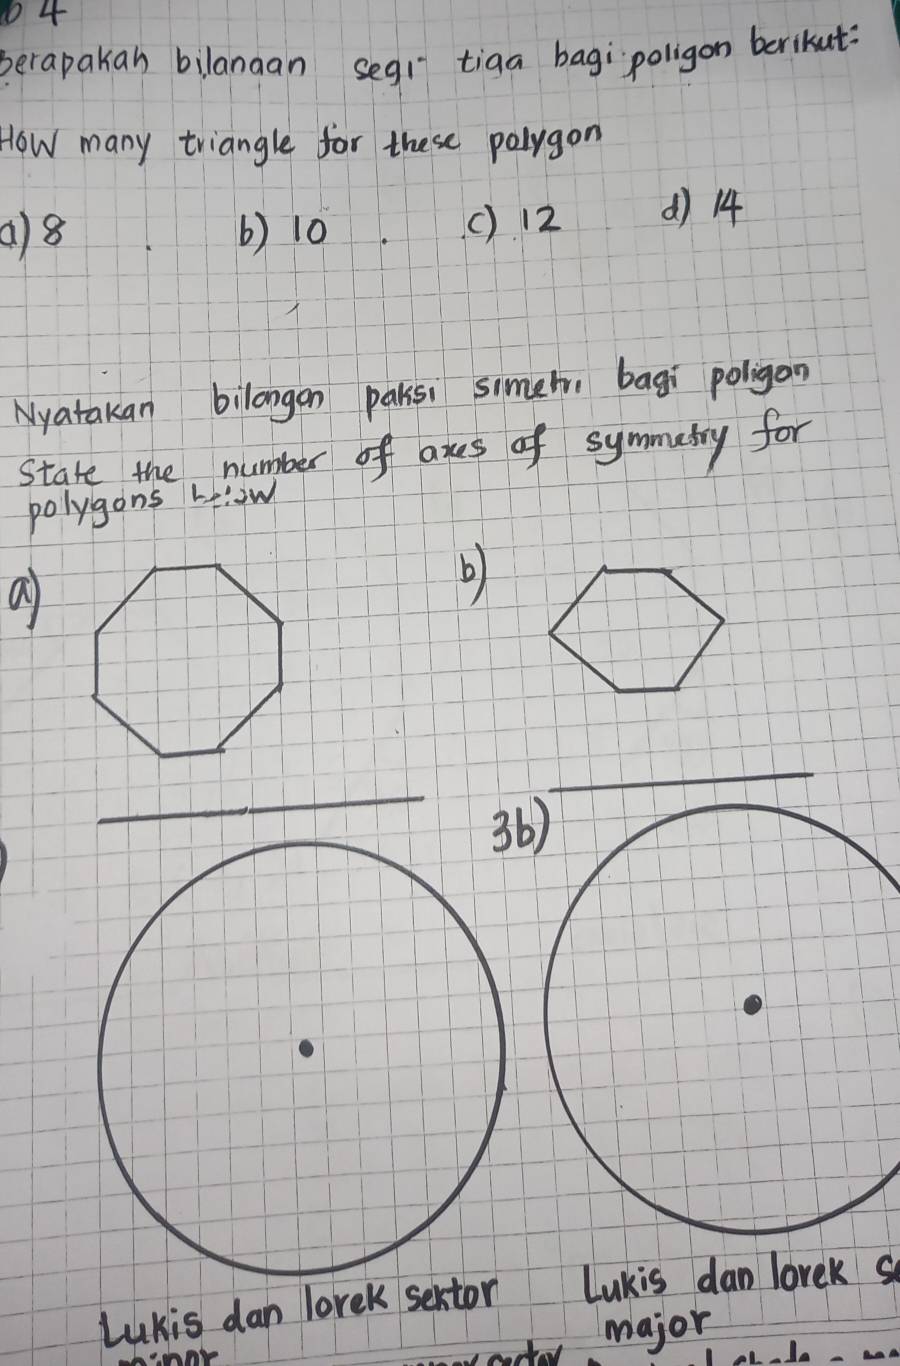 b 4
Berapakah bilangan segi tiga bagi poligon berikut:
How many triangle for these polygon
a) 8 b) 10 c) 12 d) 14
Nyatakan bilangan paksi simetri bagi poligon
State the number of axes of symmetry for
polygons below
a) b)
3b)
Lukis dan lorek sektor Lukis dan lorek se
minor major